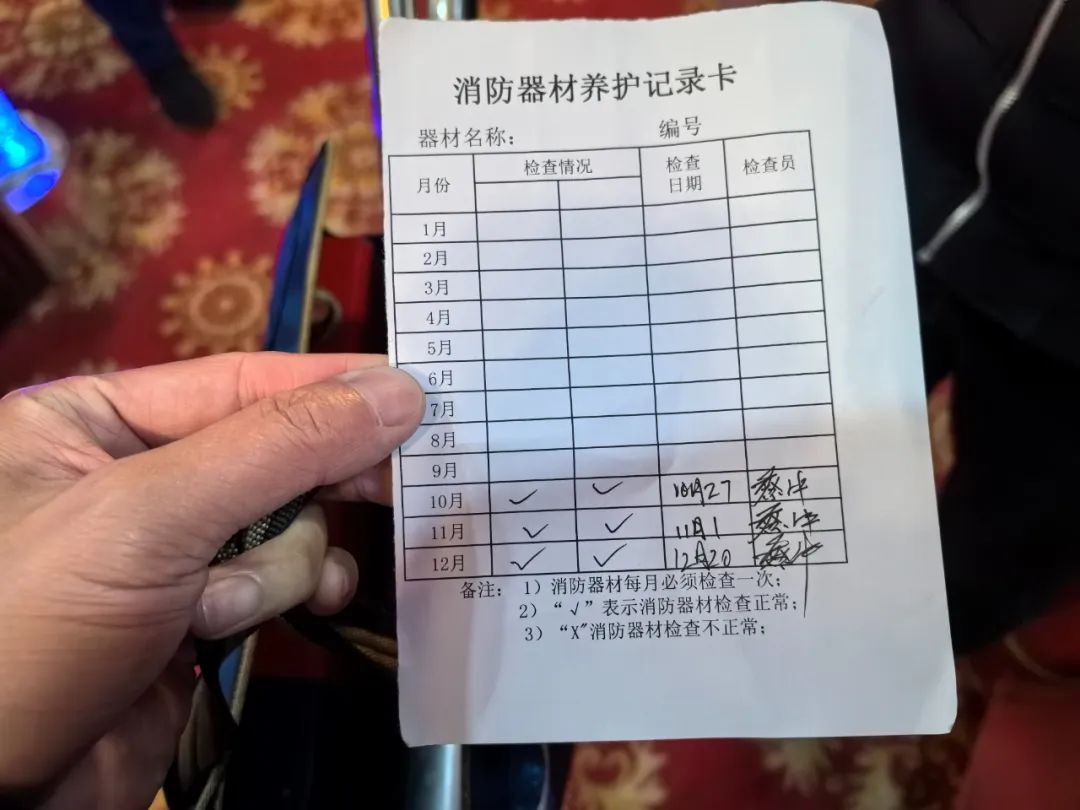 消防器材养护记录卡
器材名称： 编号
月份 检查情况 检查日期 检查员
1月
2月
3月
4月
5月
6月
7月
8月
9月
10月 ✓ ✓ 10月27
11月 ✓ ✓ 11月1
12月 ✓ ✓ 12月20
备注： 1）消防器材每月必须检查一次；
2）“√”表示消防器材检查正常；
3）“X"消防器材检查不正常；